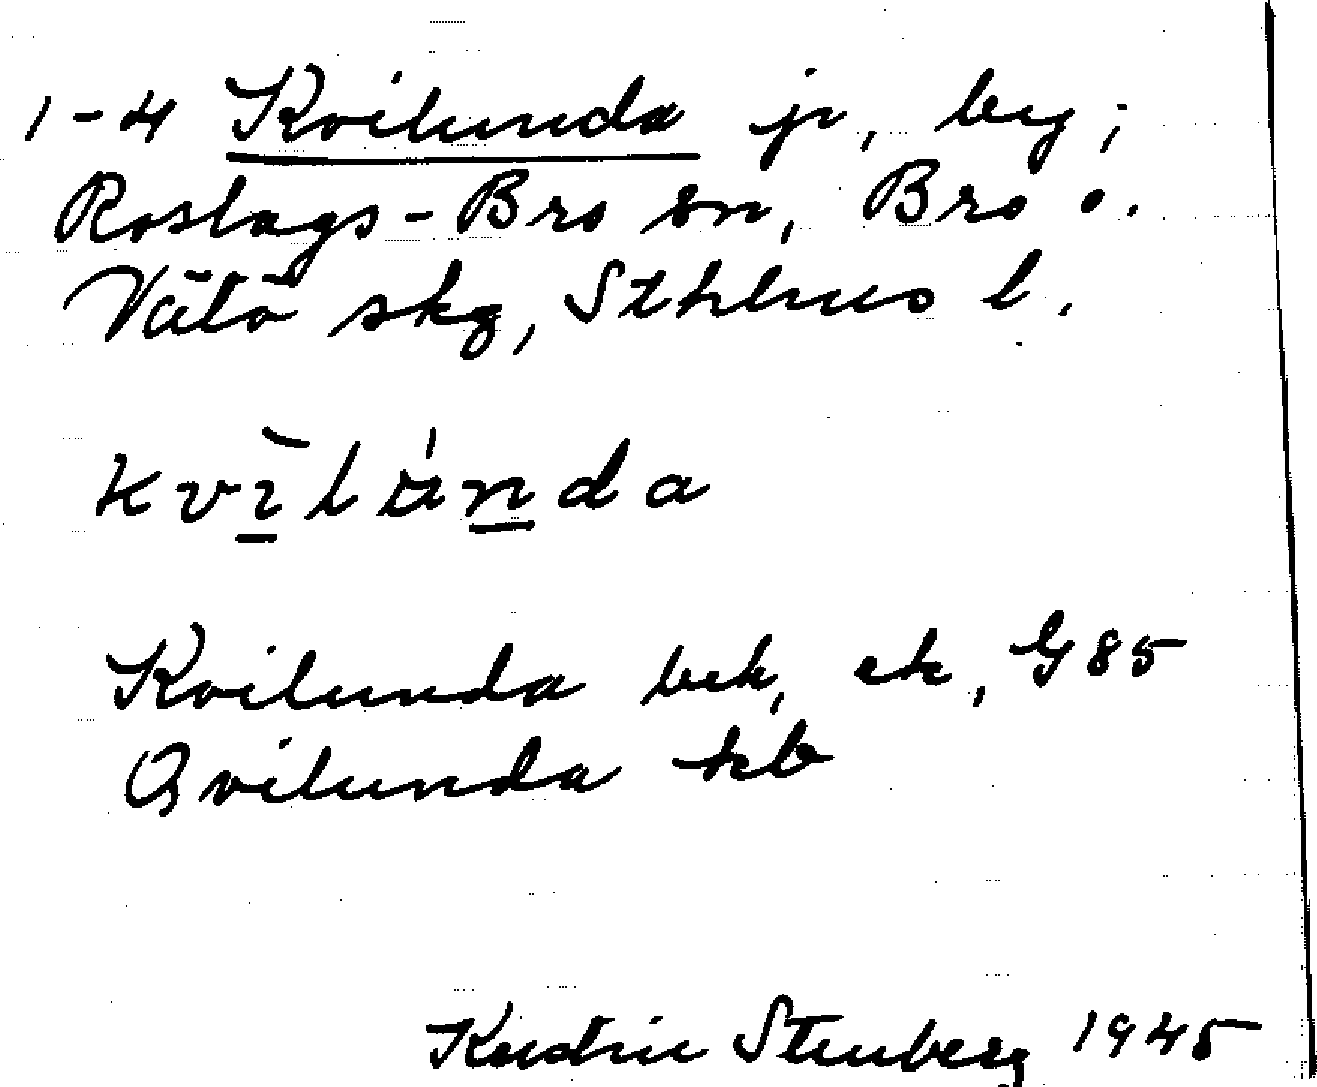 1-4 Kvilunda jr, by;
Roslags-Bro sn, Bro o.
Vätö skg, Sthlms l.
kvīlùnda
Kvilunda bek, ek, G85
Qvilunda kb
Stenberg 1945